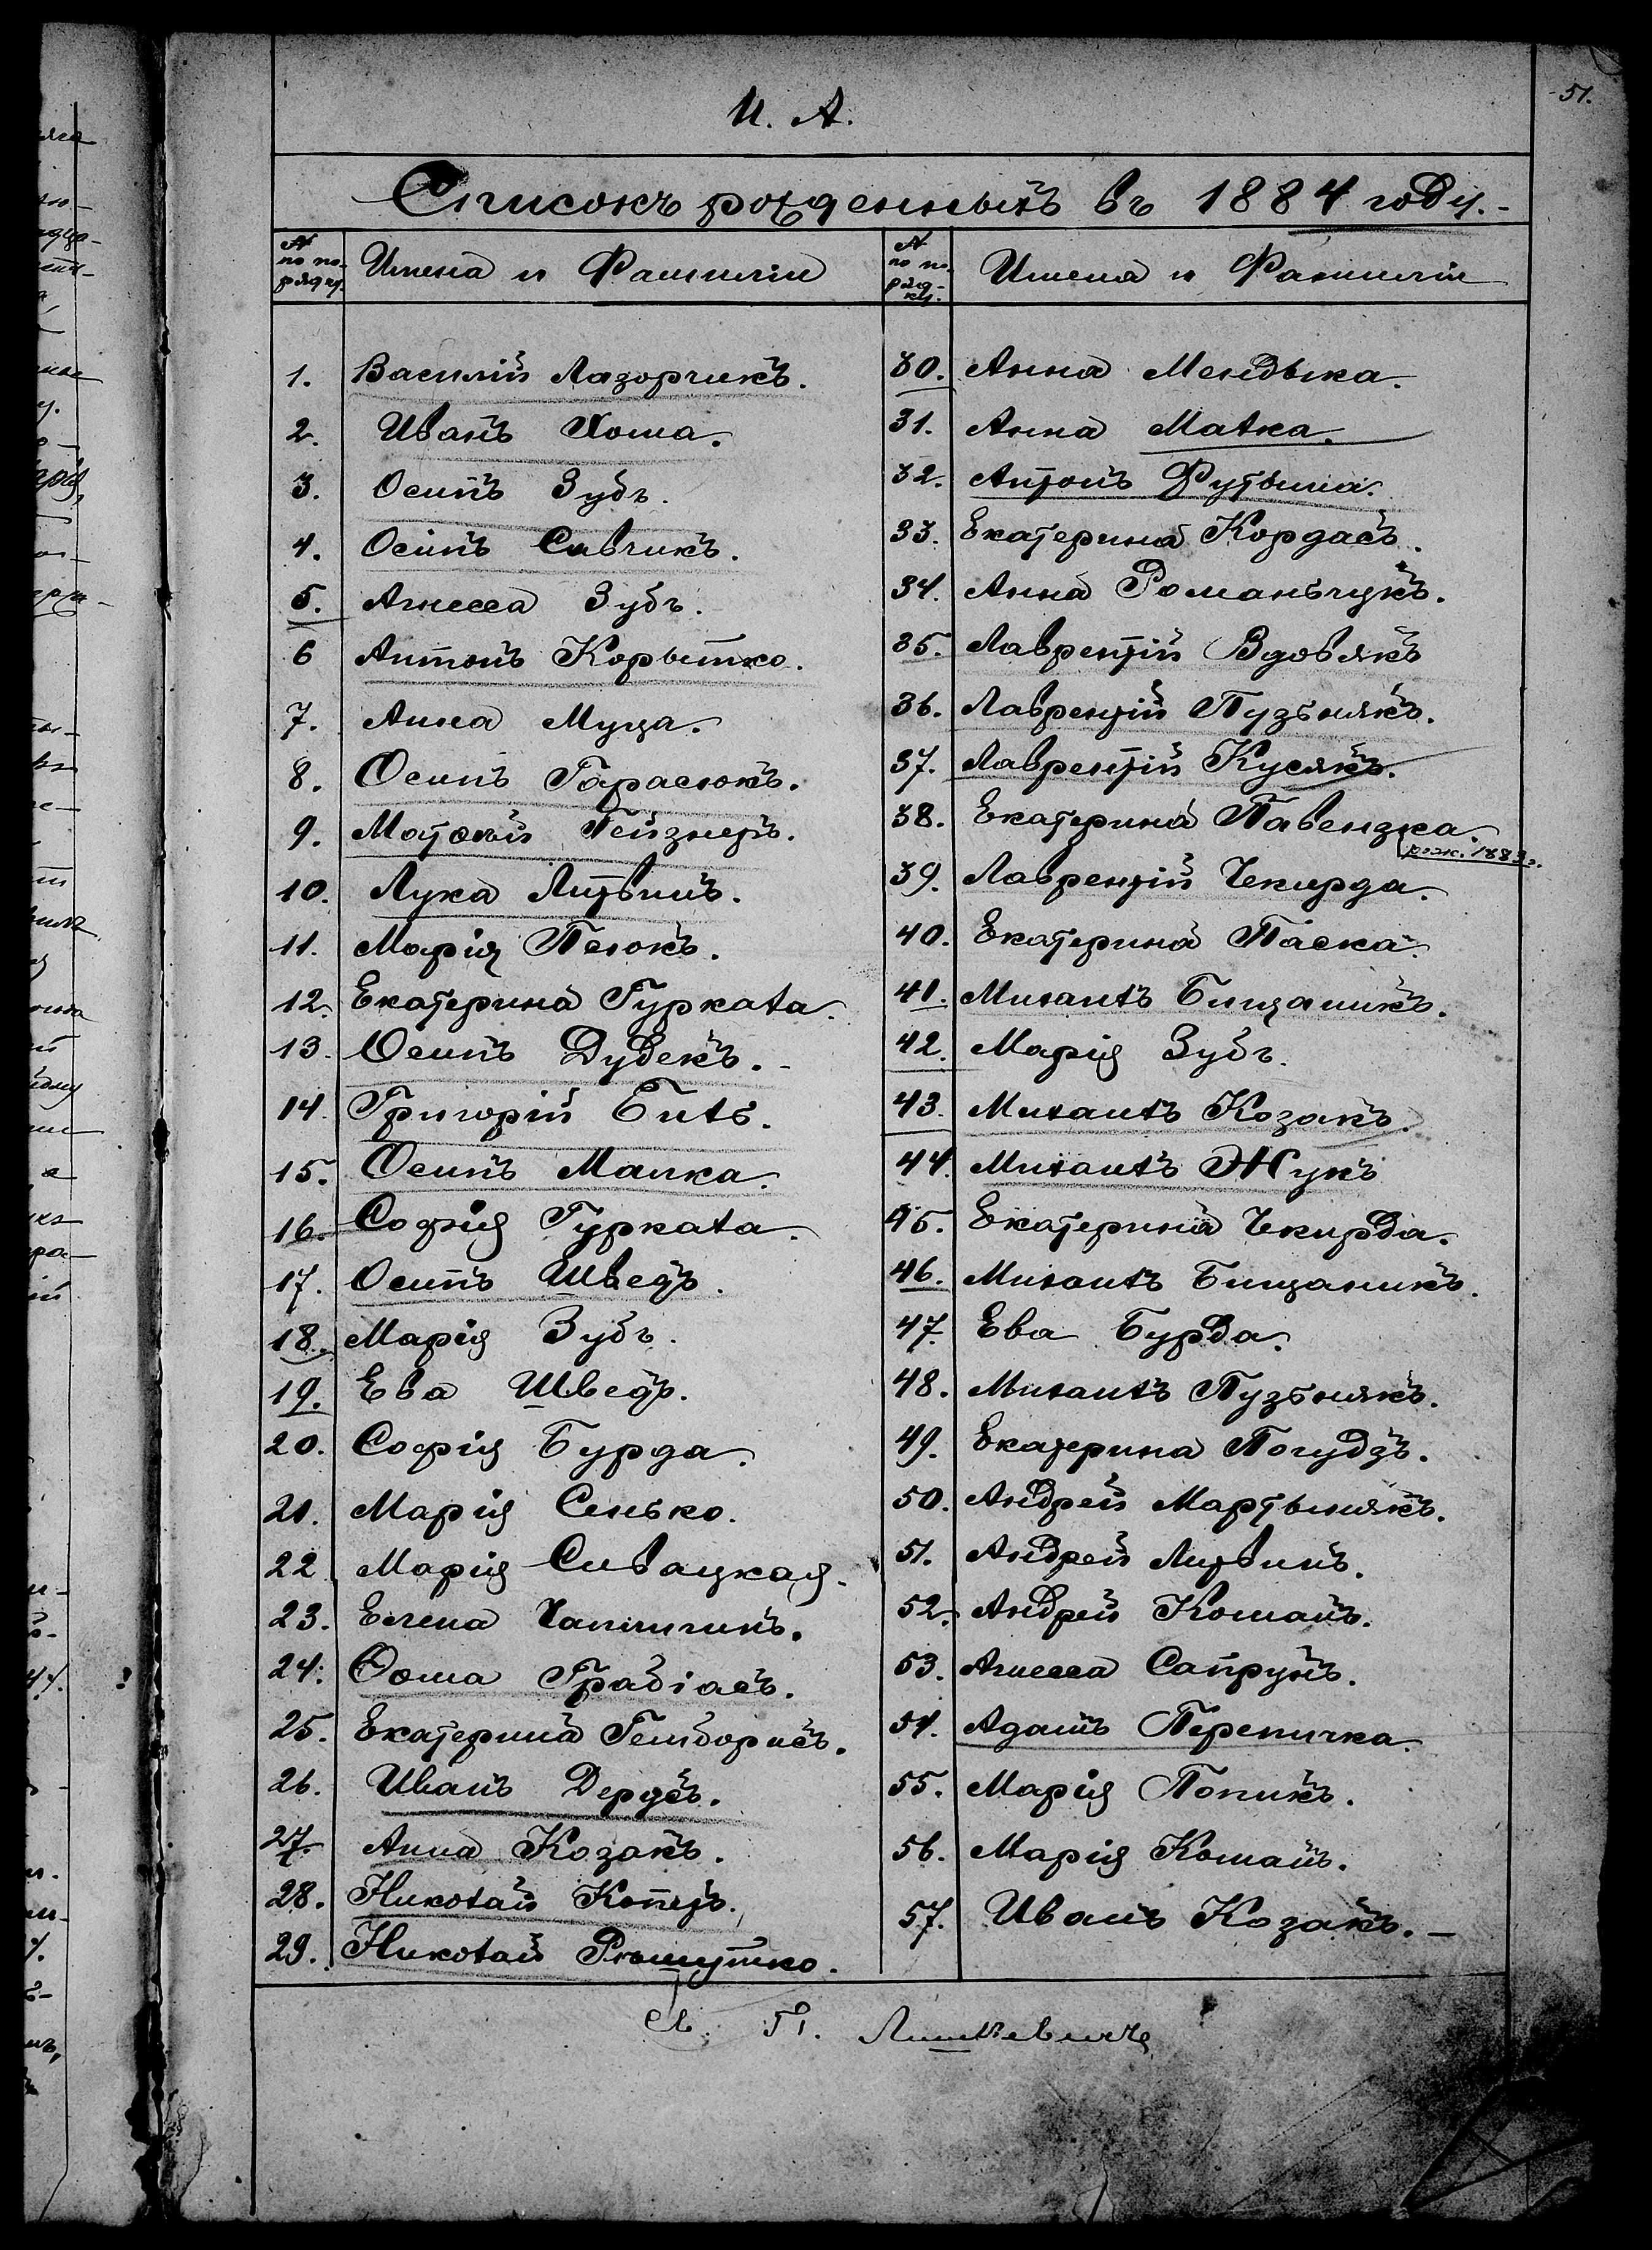 51.
И. А.
Списокъ рожденныхъ въ 1884 году.-
№ по порядку.
Имена и Фамиліи
1. Василій Лазорчикъ.
2. Иванъ Хома.
3. Осипъ Зубъ.
4. Осипъ Савчикъ.
5. Агнесса Зубъ.
6 Антонъ Корытко.
7. Анна Муца.
8. Осипъ Гарасюкъ.
9. Матѳей Гейзнеръ.
10. Лука Литвинъ.
11. Марія Песокъ.
12. Екатерина Гурката.
13. Осипъ Дудекъ.-
14. Григорій Битъ.
15. Осипъ Малка.
16. Софія Гурката.
17. Осипъ Шведъ.
18. Марія Зубъ.
19. Ева Шведъ.
20. Софія Бурда.
21. Марія Сенько.
22 Марія Сивацкая.
23. Елена
24. Ѳома Грабіасъ.
25. Екатерина Гемборисъ.
26. Иванъ Дерусъ.
27. Анна Козакъ.
28. Николай Копецъ.
29. Николай
№ по порядку.
Имена и Фамиліи
30. Анна Мендыка.
31. Анна Малка.
32. Антонъ Футыма.
33. Екатерина Кордасъ.
34. Анна Романьчукъ.
35. Лаврентій Вдовякъ
36. Лаврентій Пузьнякъ.
37. Лаврентій Кусякъ.
38. Екатерина Павензка.
рож. 1883 г.
39. Лаврентій Чекирда.
40. Екатерина Паска.
41. Михаилъ Бищаникъ.
42. Марія Зубъ.
43. Михаилъ Козакъ.
44. Михаилъ Жукъ
45. Екатерина Чкирда.
46. Михаилъ Бищаникъ.
47. Ева Бурда.
48. Михаилъ Пузьнякъ.
49. Екатерина Погудзъ.
50. Андрей Мартынякъ.
51. Андрей Литвинъ.
52. Андрей Команъ.
53. Агнесса Сапрунъ.
54. Адамъ Перепичка.
55. Марія Попикъ.
56. Марія Команъ.
57. Иванъ Козакъ.-